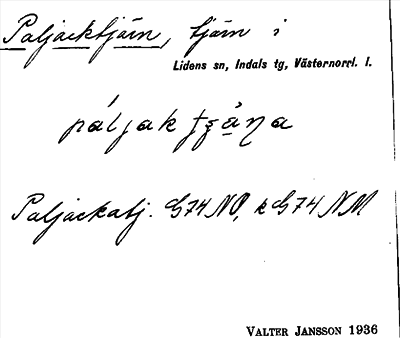 Paljacktjärn, tjärn i
Lidens sn, Indals tg, Västernorrl. l.
Paljackatj. G74 NO, k G74 NM
VALTER JANSSON 1936